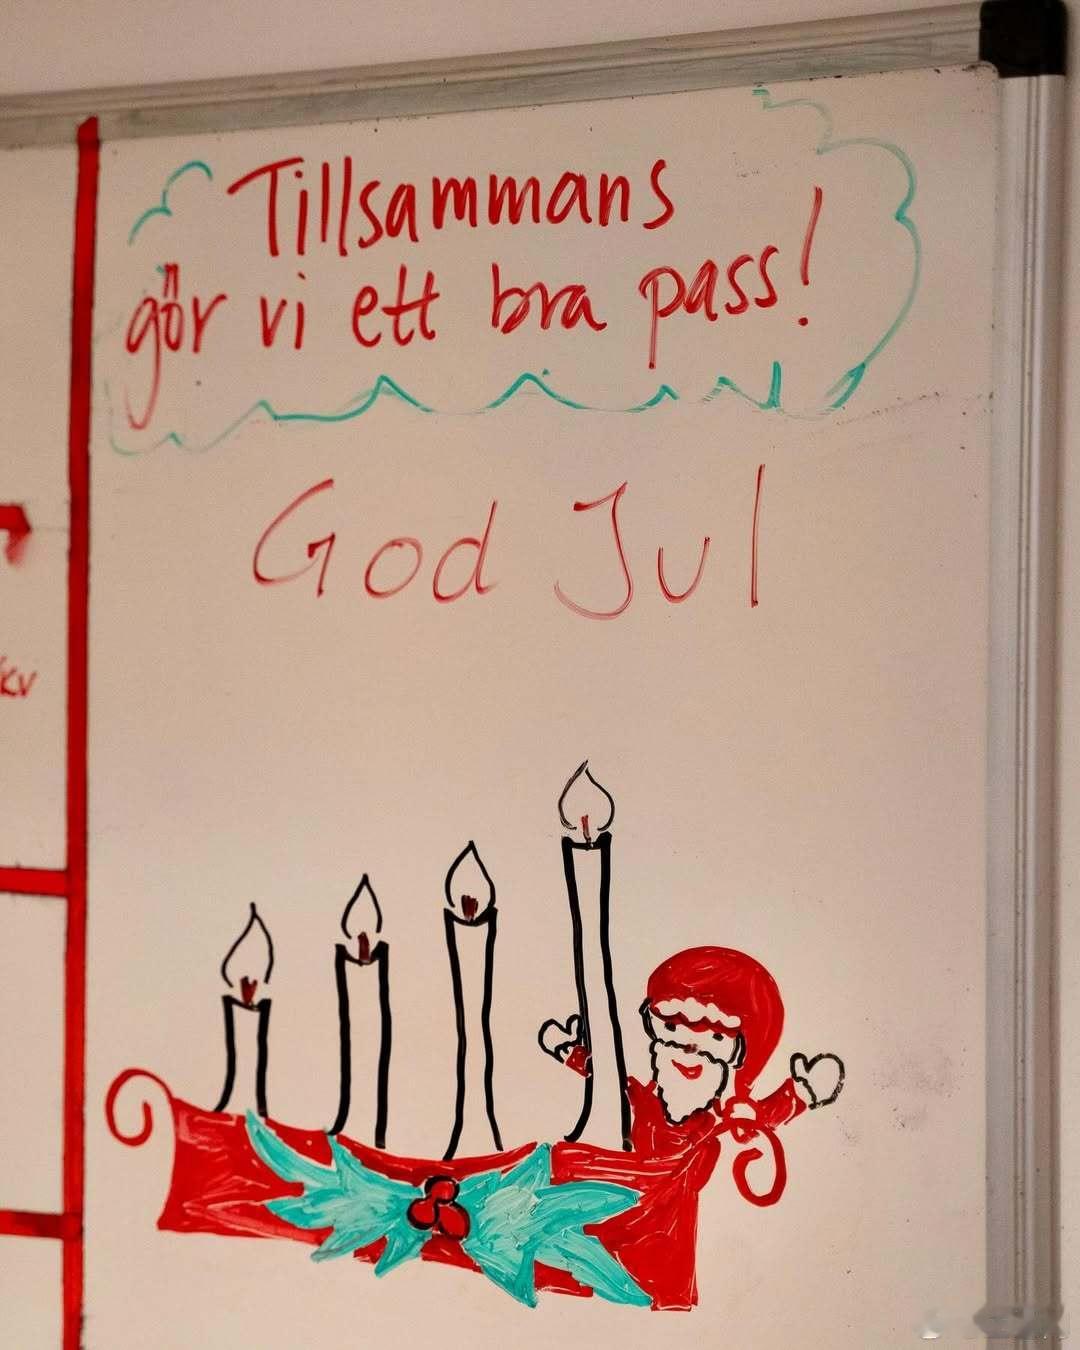 Tillsammans
gör vi ett bra pass!
God Jul
kv